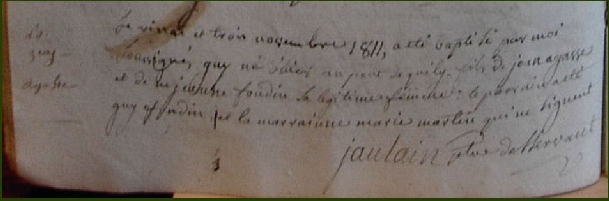 Le vingt et trois novembre 1811, a été baptisé par moi
soussigné, guy né hier au pont de quily fils de jean agasse
et de marie jeanne foudin sa legitime femme: le parrain a été
guy foudin et la marrainne marie martin qui ne signent
jaulain ptre de
guy
agasse